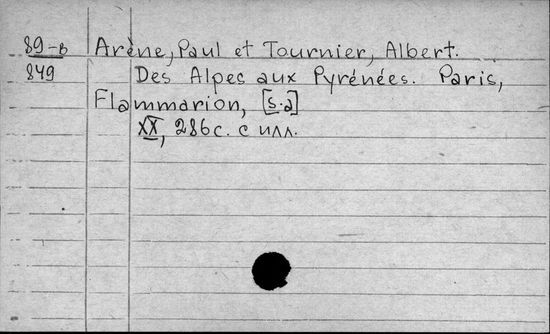 89-в Arène, Paul et Tournier, Albert.
849 Des Alpes aux Pyrénées. Paris,
Flammarion, [s.a]
XX, 286 с. с илл.